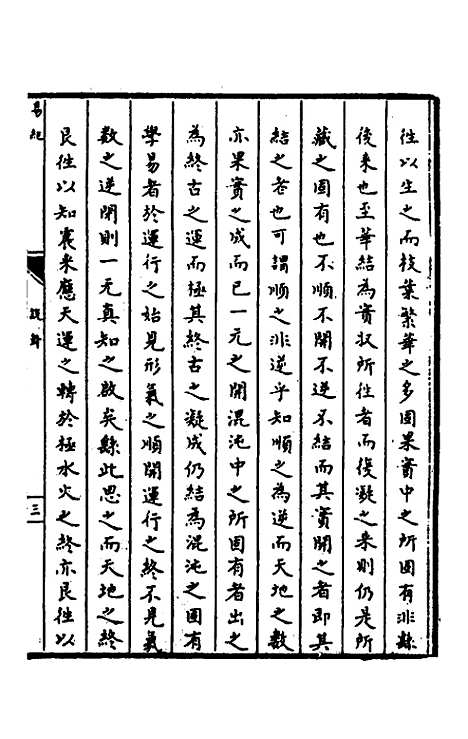 往以生之而枝葉繁華之多固果實中之所固有非繇
後来也至華結為實狀所往者而復凝之来則仍是所
藏之固有也不順不開不逆不結而其實開之者即其
結之者也可謂順之非逆乎知順之為逆而天地之數
亦果實之成而已一元之開混沌中之所固有者出之
為終古之運而極其終古之凝成仍結為混沌之固有
學易者於運行之始見形氣之順開運行之終不見氣
数之逆閉則一无真知之啟矣繇此思之而天地之終
艮往以知震来應天運之轉於極水火之終亦艮往以
易紀
說辭
三